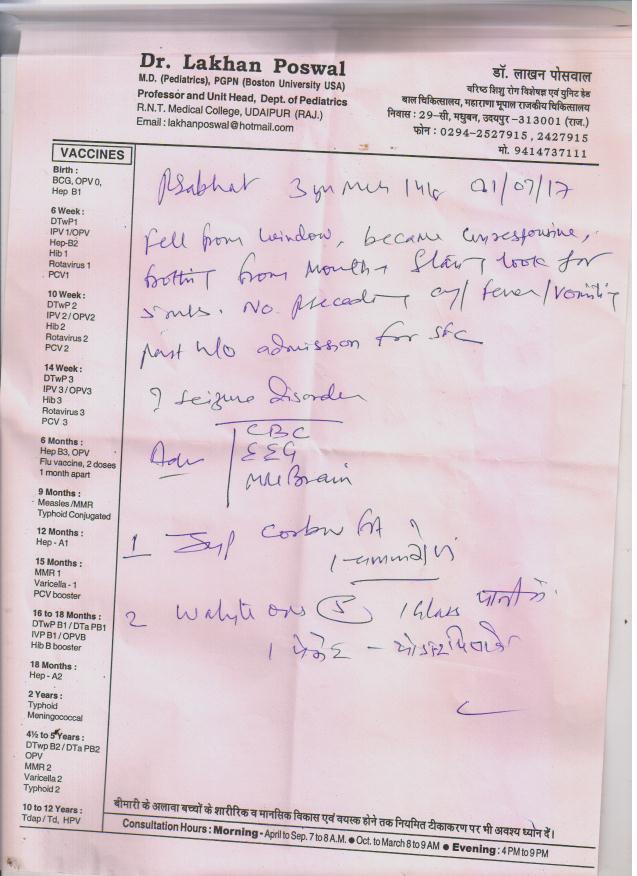 Dr. Lakhan Poswal
M.D. (Pediatrics), PGPN (Boston University USA)
Professor and Unit Head, Dept. of Pediatrics
R.N.T. Medical College, UDAIPUR (RAJ.)
Email : lakhanposwal@hotmail.com
डॉ. लाखन पोसवाल
वरिष्ठ शिशु रोग विशेषज्ञ एवं युनिट हेड
बाल चिकित्सालय, महाराणा भूपाल राजकीय चिकित्सालय
निवास : 29-सी, मधुबन, उदयपुर -313001 (राज.)
फोन : 0294-2527915, 2427915
मो. 9414737111
VACCINES
Birth :
BCG, OPV 0,
Hep B1
6 Week :
DTwP1
IPV 1/OPV
Hep-B2
Hib 1
Rotavirus 1
PCV1
10 Week :
DTwP 2
IPV 2 / OPV2
Hib 2
Rotavirus 2
PCV 2
14 Week :
DTwP3
IPV 3 / OPV3
Hib 3
Rotavirus 3
PCV 3
6 Months :
Hep B3, OPV
Flu vaccine, 2 doses
1 month apart
9 Months :
Measles /MMR
Typhoid Conjugated
12 Months :
Hep - A1
15 Months :
MMR 1
Varicella - 1
PCV booster
16 to 18 Months :
DTwP B1 / DTa PB1
IVP B1 / OPVB
Hib B booster
18 Months :
Hep - A2
2 Years :
Typhoid
Meningococcal
4½ to 5 Years :
DTwp B2 / DTa PB2
OPV
MMR 2
Varicella 2
Typhoid 2
10 to 12 Years :
Tdap / Td, HPV
3 yr 01/07/17
Fell from window, became unresponsive,
from mouth look for
No fever/vomiting
past h/o admission for
? Seizure disorder
Adv CBC
EEG
MRI Brain
1 Syp
2 ORS 1 Glass पानी में
1 पैकेट -
बीमारी के अलावा बच्चों के शारीरिक व मानसिक विकास एवं वयस्क होने तक नियमित टीकाकरण पर भी अवश्य ध्यान दें।
Consultation Hours : Morning - April to Sep. 7 to 8 A.M. ● Oct. to March 8 to 9 AM ● Evening : 4 PM to 9 PM